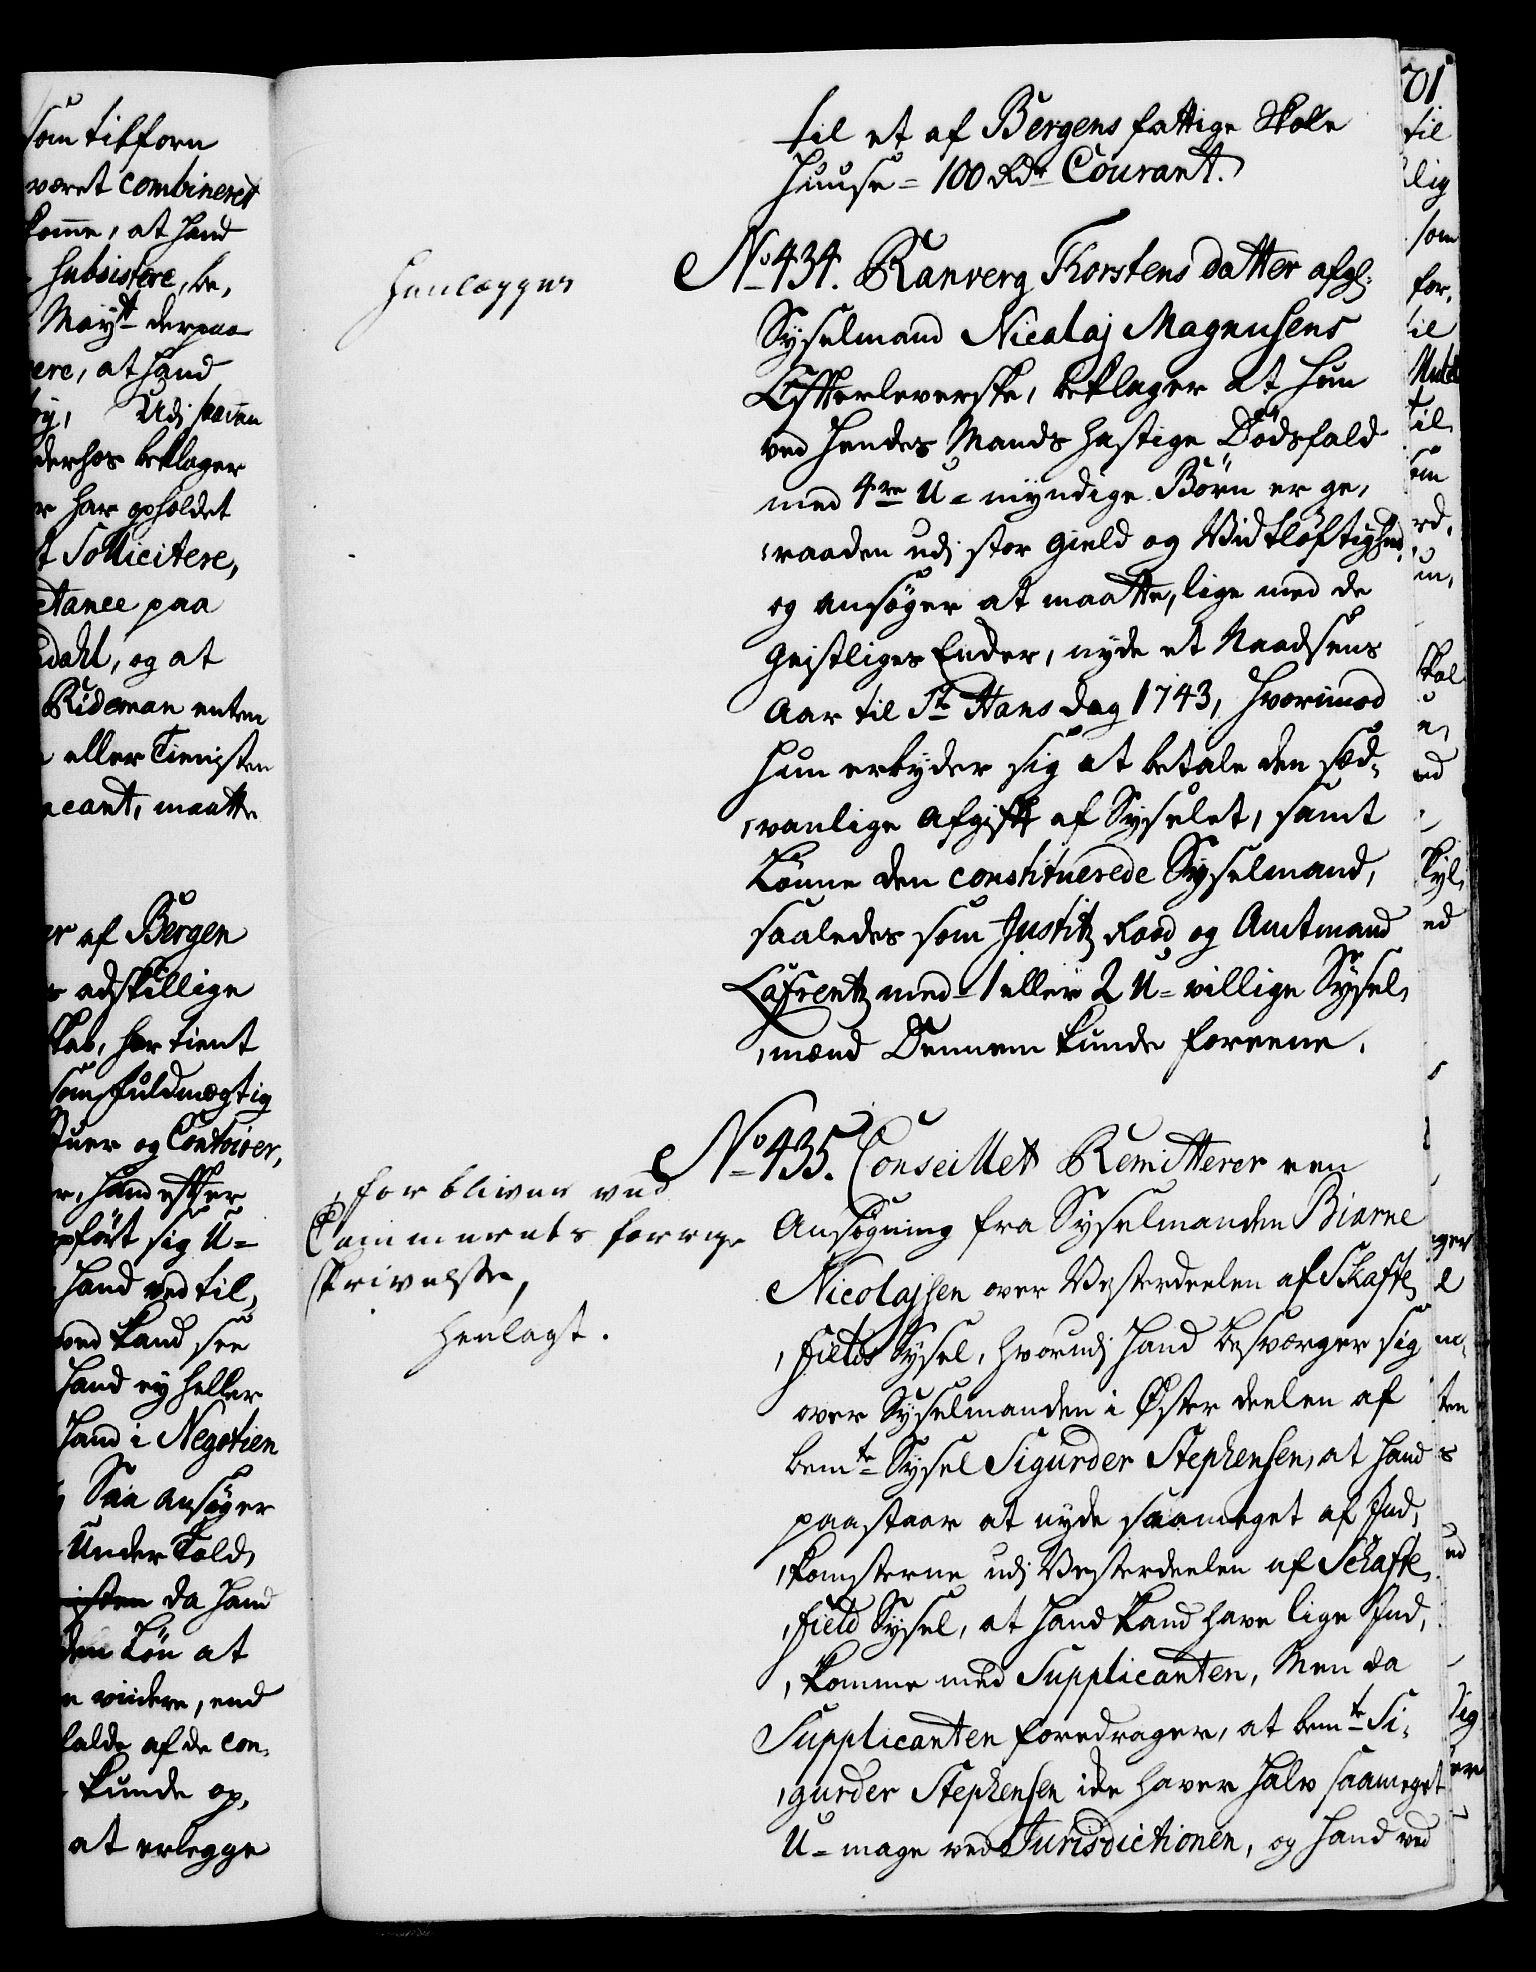 som tilforn
været combineret
komme, at hand
subsistere, be,
Mayt derpaa
ere, at hand
derhos beklager
r har opholdet
t Sollicitere,
ctance paa
dahl, og at
Rideman enten
eller Tienesten
acant, maatte
er af Bergen
adskillige
skab, har tient
som fuldmægtig
Stuer og Contoirer,
r, hand efter
pført sig U=
hand ved til,
ved kand see
hand ey heller
hand i Negotien
Saa ansøger
Under Told,
da hand
den Løn at
mindre, end
falde af de con,
kunde op,
at erlegge
til et af Bergens fattige Skole
Huuse = 100 Rdr Courant.
henlægges
No 434. Ranverg Thorstens datter afgl:
Syselmand Nicolaj Magnusens
Effterleverske, beklager at hun
ved hendes Mands hastige Dödsfald
med 4re U=myndige Börn er ge,
,raaden udj stor gield og Vidtløftighed,
og ansøger at maatte, lige med de
Geistliges Encker, nyde et Naadsens
Aar til St Hans dag 1743, hvorimod
hun erbyder sig at betale den sæd,
,vanlige Afgifft af Syselet, samt
Lønne den constituerede Syselmand,
saaledes som Justitz Raad og Amtmand
Lafrentz med 1 eller 2 U=villige Sysel,
,mænd Dennem kunde foreene.
forbliver ved
Cammerets forrige
skrivelse,
henlagt.
No 435. Conseillet Remitterer een
Ansøgning fra Syselmanden Biarne
Nicolajsen over Vesterdeelen af Skafte,
,fields Sysel, hvorudj hand besværger sig
over Syselmanden i Øster deelen af
bemte Sysel Sigurder Stephensen, at hand
paastaar at nyde saameget af Ind,
,komsterne udj Vesterdeelen af Schafte,
,field Sysel, at hand kand have lige Ind,
,komme med Supplicanten, Men da
Supplicanten foredrager, at bemte Si,
,gurder Stephensen icke haver halv saameget
U=mage ved Jurisdictionen, og hand ved
til
lig
som
for,
til
til
som
skal
ed
ed
ten
ud